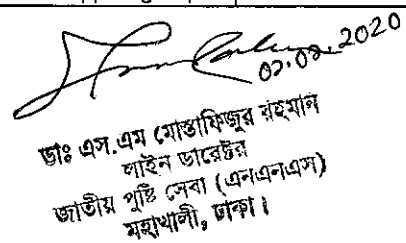 02.02.2020
ডাঃ এস.এম মোস্তাফিজুর রহমান
লাইন ডারেক্টর
জাতীয় পুষ্টি সেবা (এনএনএস)
মহাখালী, ঢাকা।